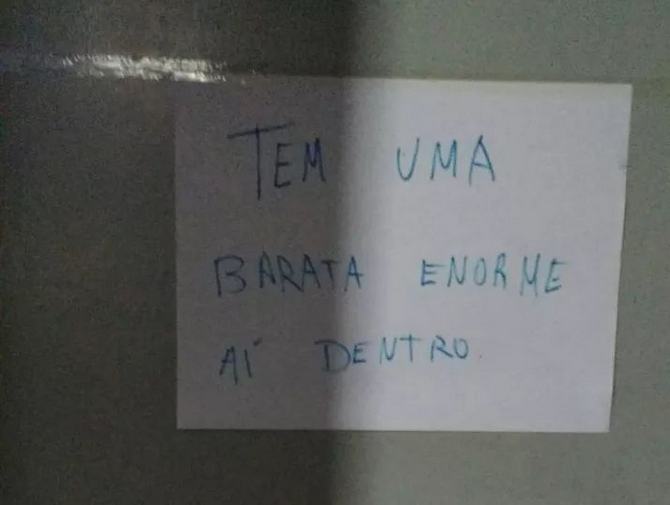 TEM UMA
BARATA ENORME
AÍ DENTRO.